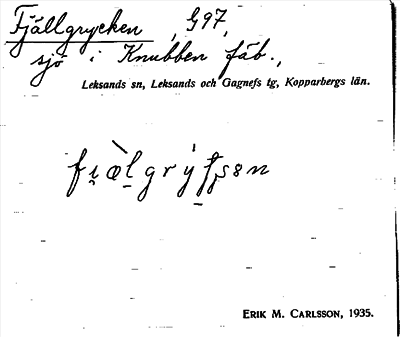 Fjällgrycken, G97,
sjö i Knubben fäb.,
Leksands sn, Leksands och Gagnefs tg, Kopparbergs län.
ERIK M. CARLSSON, 1935.